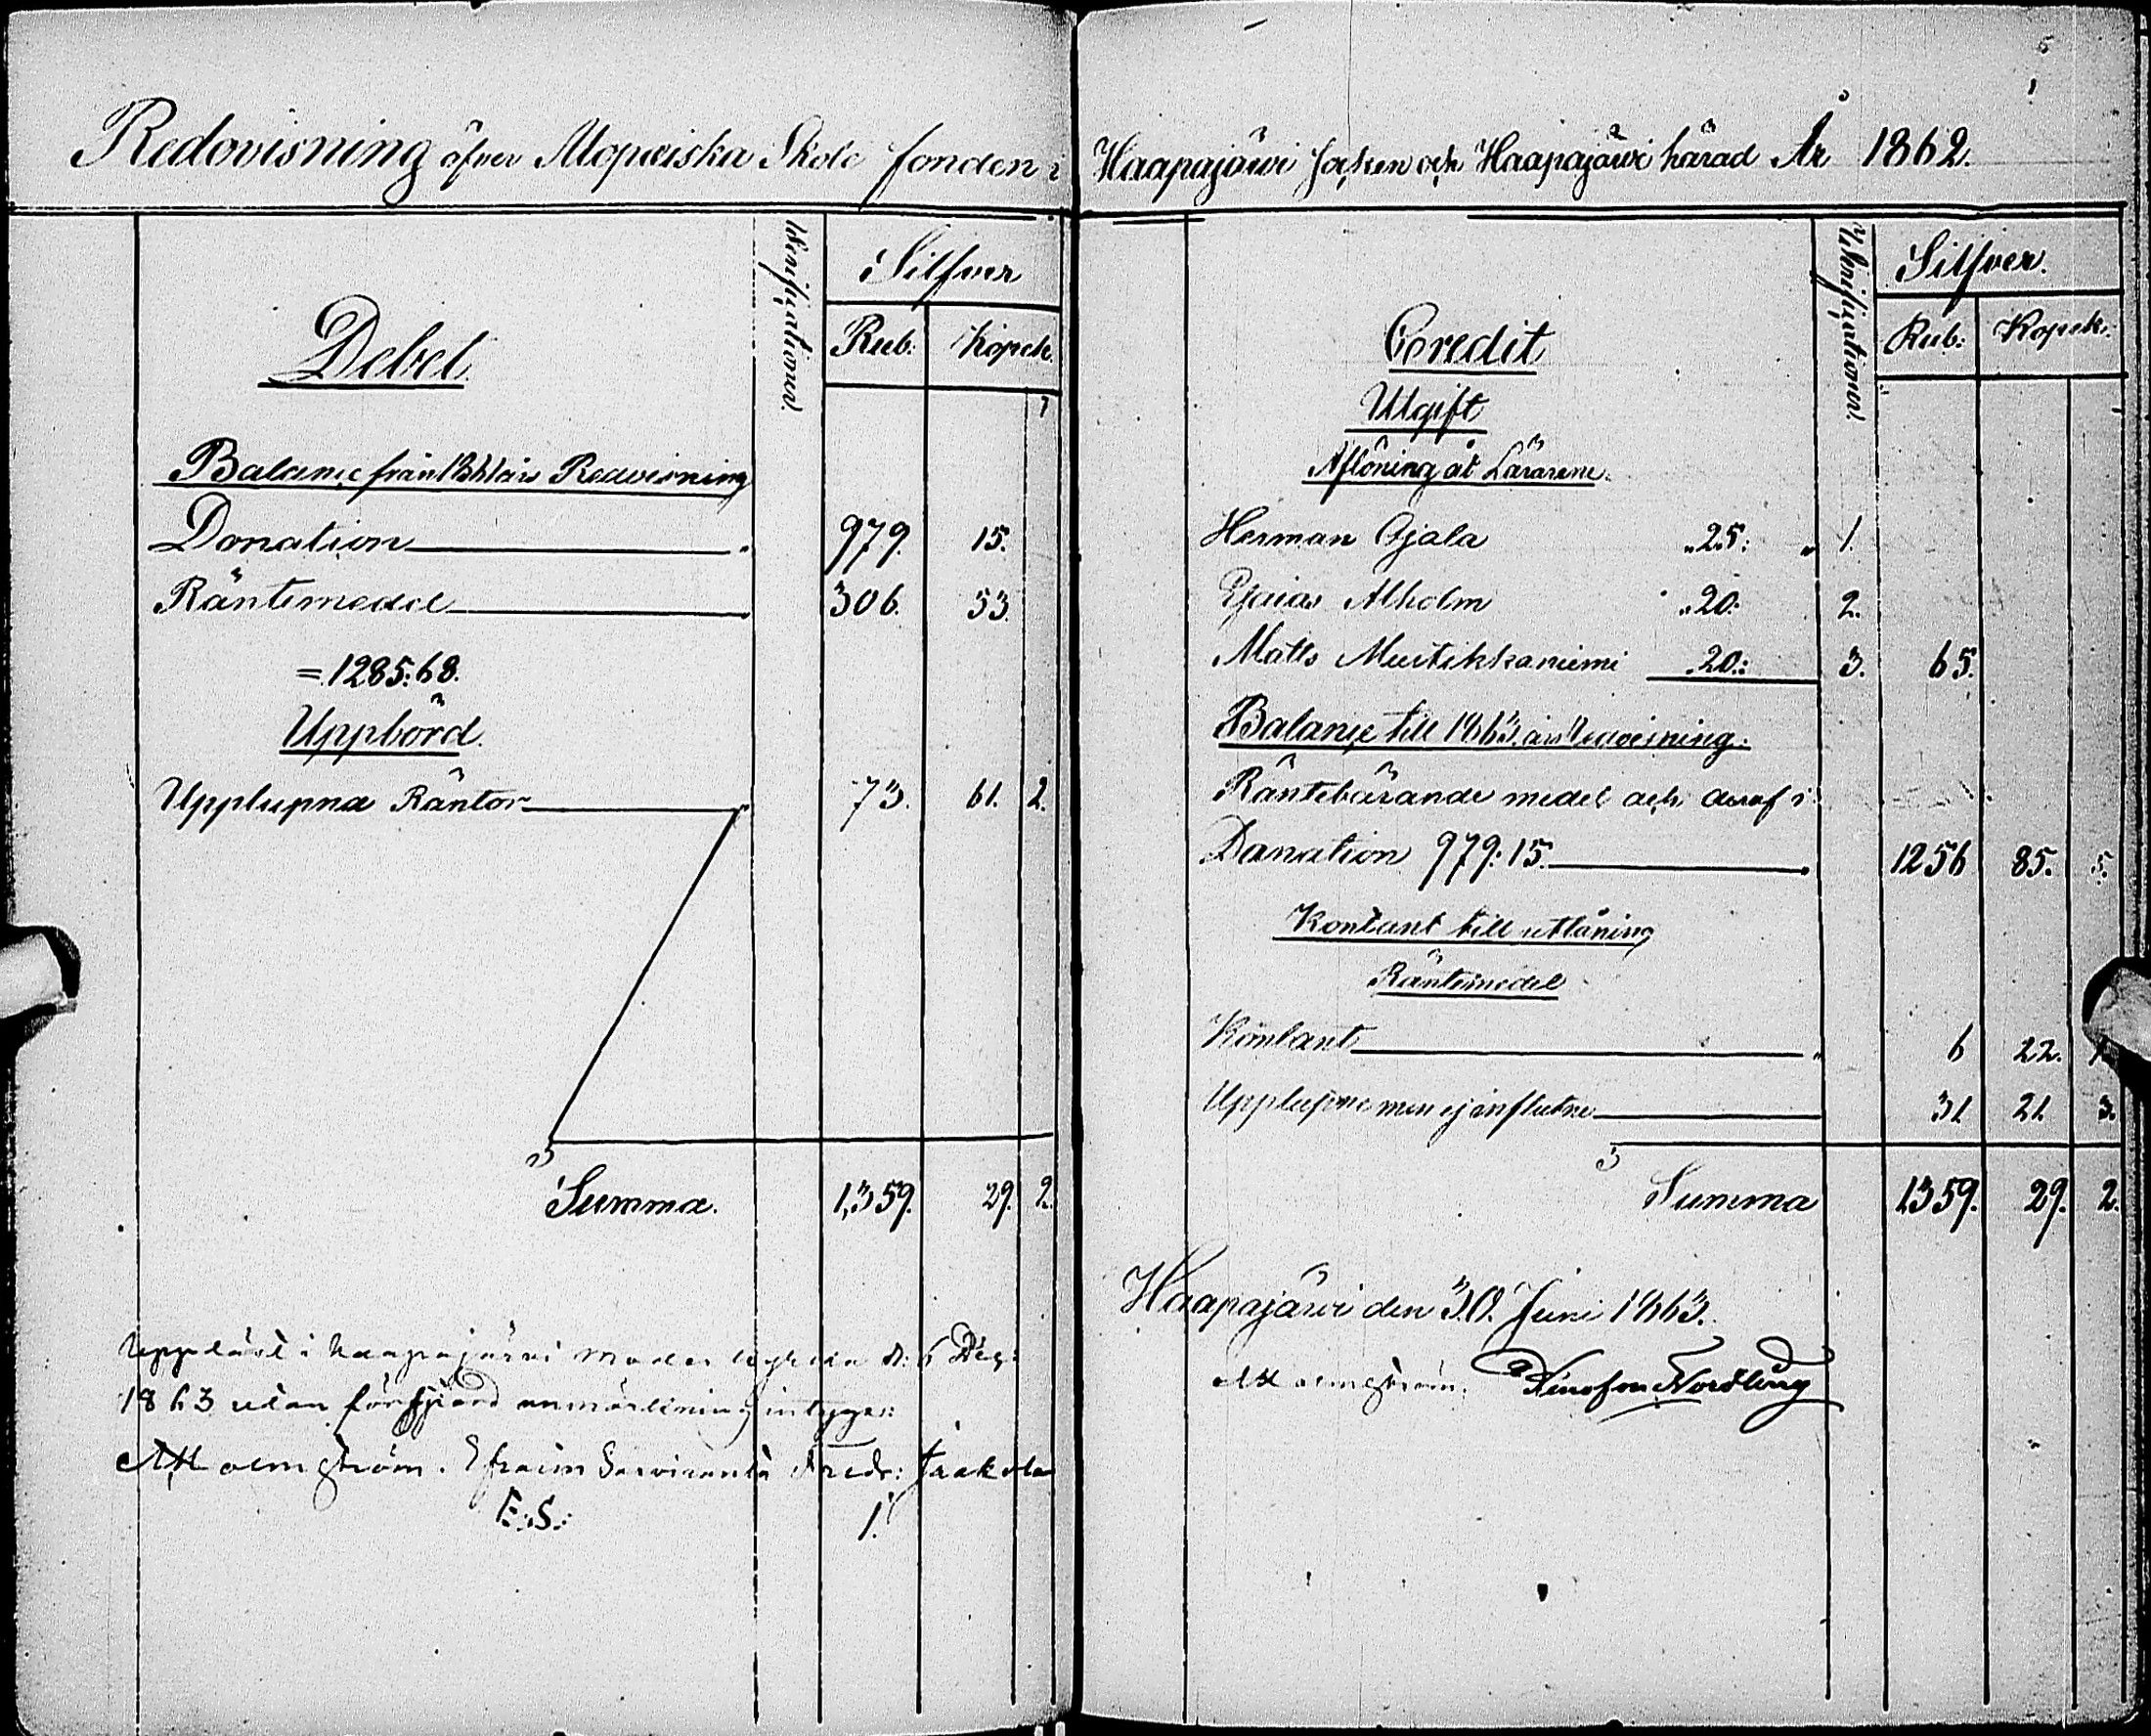 Redovisning öfver Mopeiska Skole fonden i Haapajärvi Socken och Haapajärvi härad År 1862.
Debet
Verificationer.
Silfver
Rub: Kopek.
Balance från 1861 års Redovisning
Donation 979. 15.
Räntemedel 306. 53.
= 1285: 68.
Uppbörd.
Upplupna Räntor 73. 61. 2.
Summa. 1,359. 29. 2.
Uppläst i Haapajärvi moder kyrka d: 6 Dec:
1863 utan anmärkning intyga:
A H olmström. Efraim Fredr: Jaakola
E: S: 1.
Credit
Verificationer.
Silfver.
Rub: Kopek:
Utgift
Aflöning åt Lärarene.
Herman Ojala „25: „ 1.
Esaias Alholm „20: 2.
Matts Mustikkaniemi „20: 3. 65.
Balance till 1863 års Redovisning:
Räntebärande medel och deraf i
Donation 979: 15. 1256 85. 5.
Kontant till utlåning
Räntemedel
Kontant 6 22.
Upplupne men ej influtne 31 21 3.
Summa 1359. 29. 2.
Haapajärvi den 30. Juni 1863.
A H olmström. Nordling